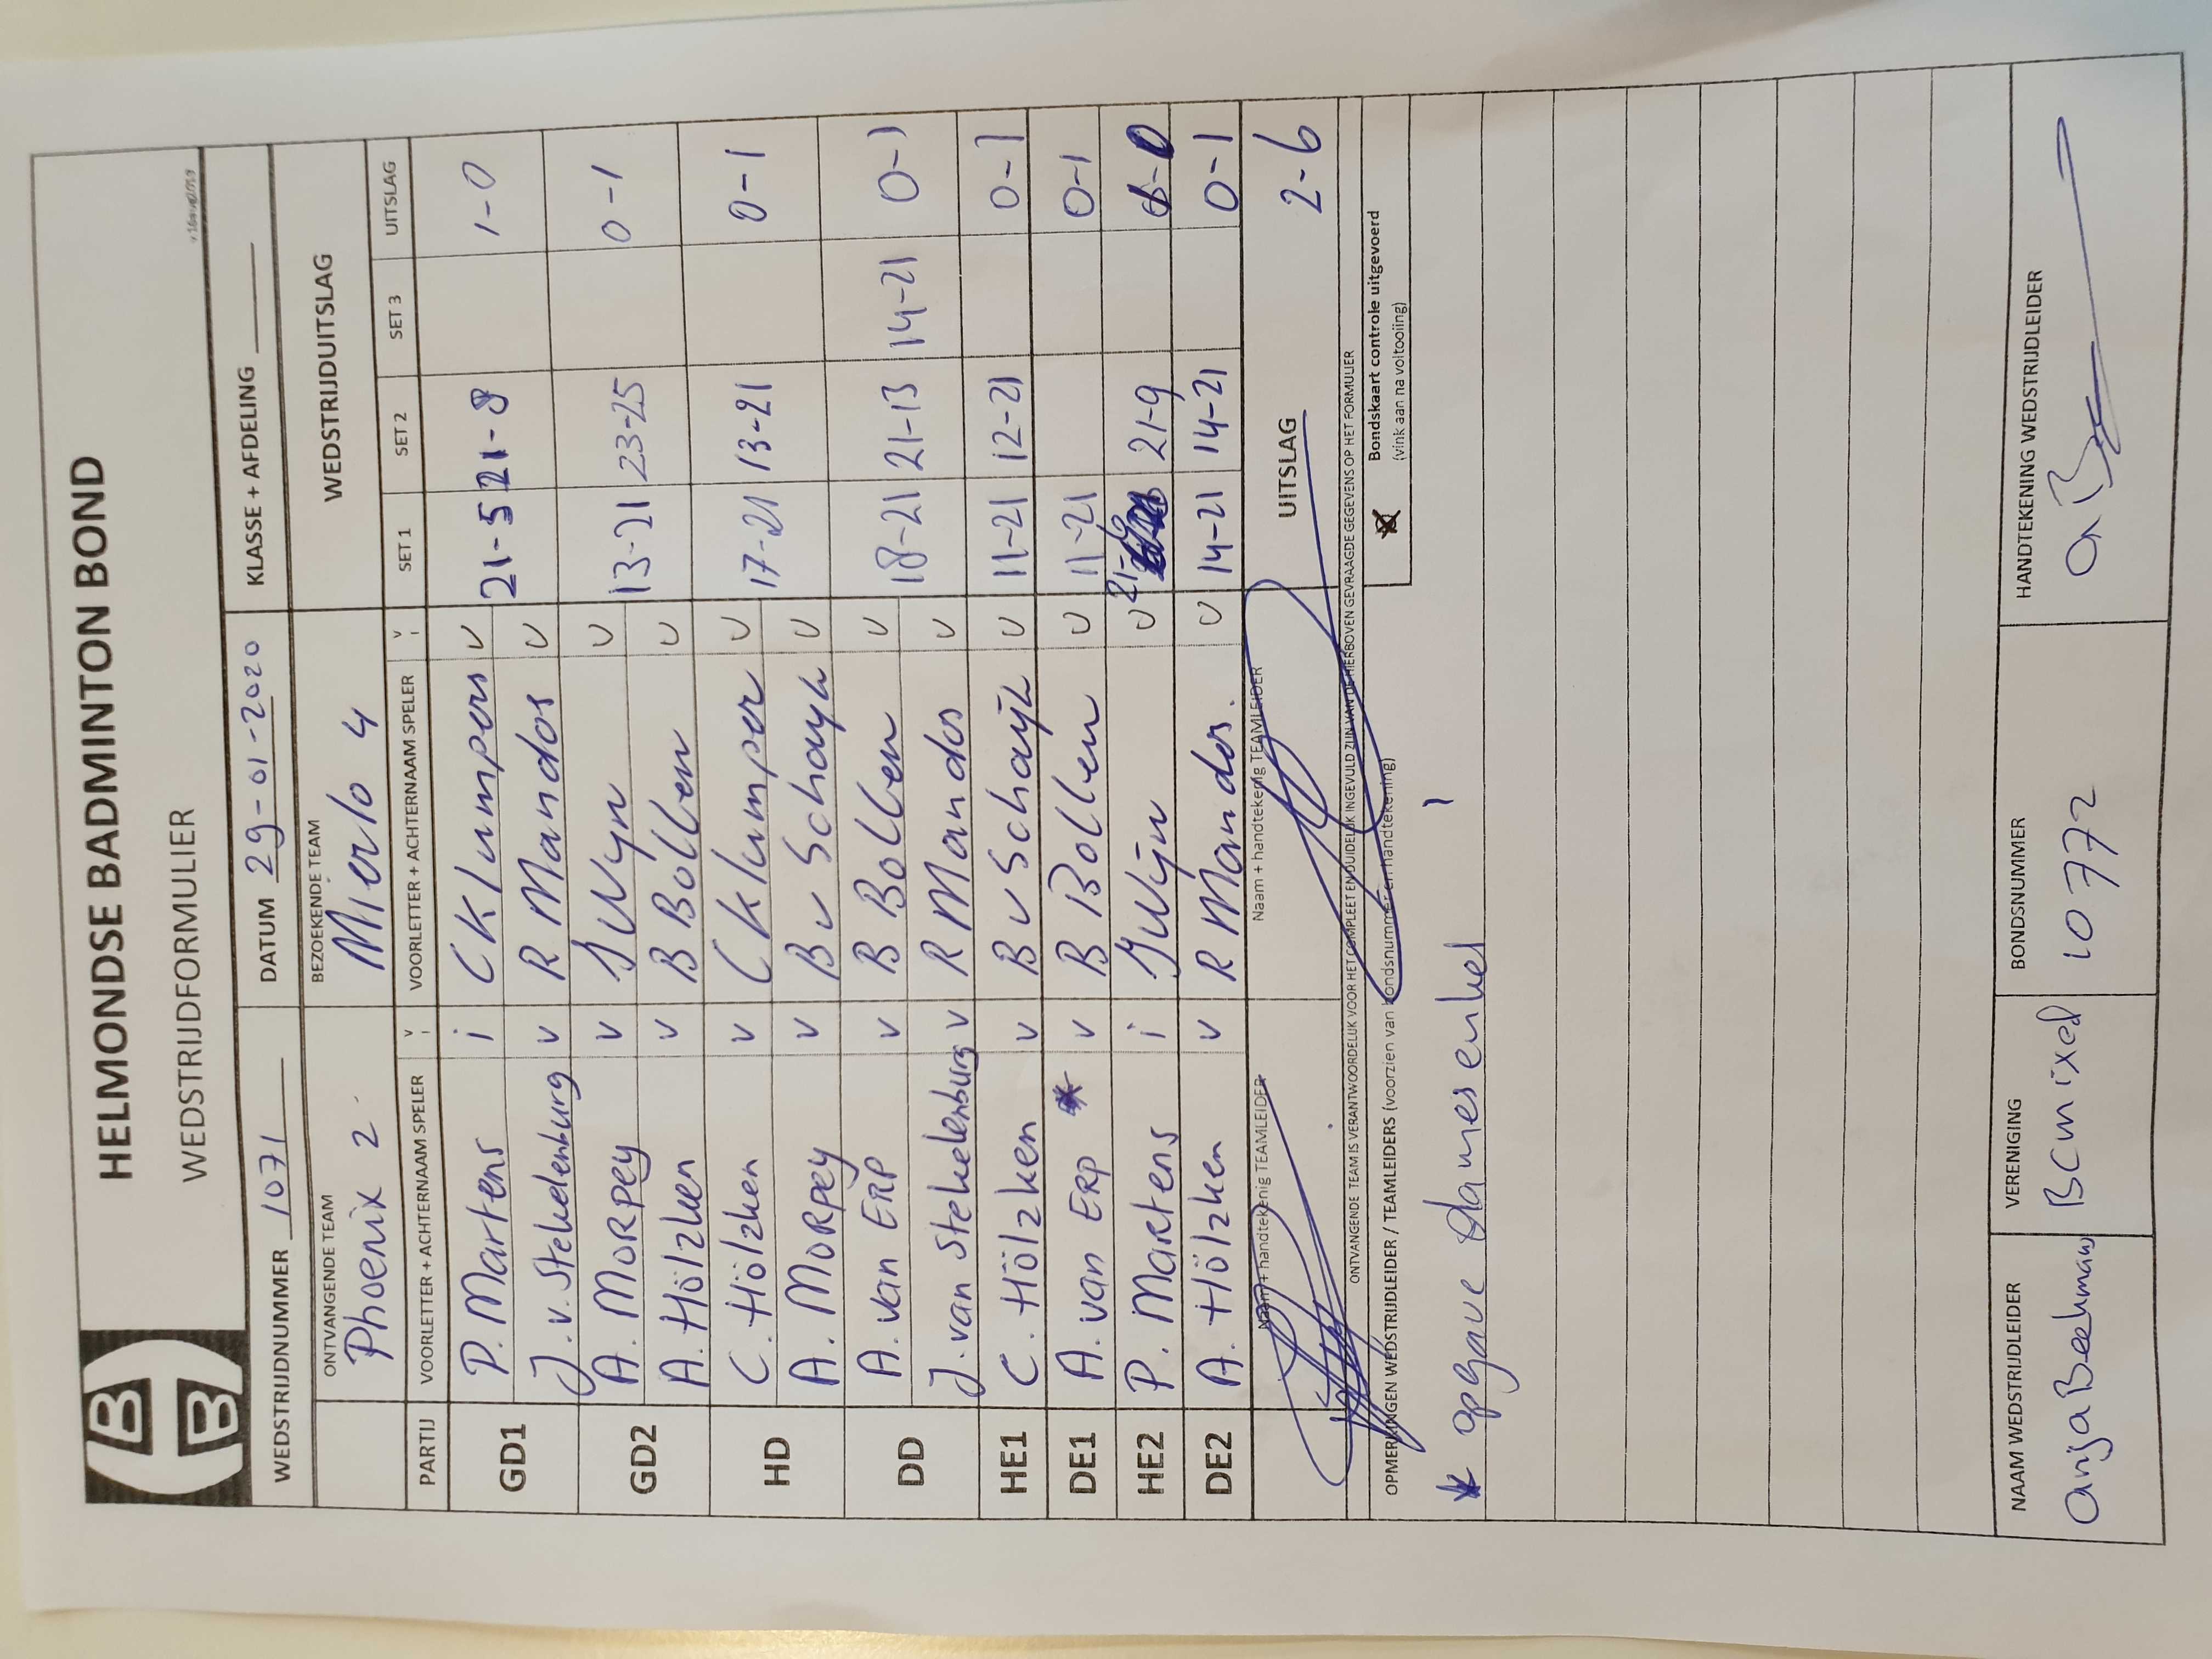 HELMONDSE BADMINTON BOND
WEDSTRIJDFORMULIER
B
B
WEDSTRIJDNUMMER 1071 DATUM 29-01-2020 KLASSE + AFDELING
ONTVANGENDE TEAM BEZOEKENDE TEAM WEDSTRIJDUITSLAG
Phoenix 2 Mierlo 4
PARTIJ VOORLETTER + ACHTERNAAM SPELER V i VOORLETTER + ACHTERNAAM SPELER V i SET 1 SET 2 SET 3 UITSLAG
GD1 P. Martens i C Klumpers v 21-5 21-8 1-0
J. v. Stekelenburg v R Mandos v
GD2 A. Morpey v J Wijn v 13-21 23-25 0-1
A. Hölzken v B Bollen v
HD C. Hölzken v C Klumper v 17-21 13-21 0-1
A. Morpey v B v Schayk v
DD A. van Erp v B Bollen v 18-21 21-13 14-21 0-1
J. van Stekelenburg v R Mandos v
HE1 C. Hölzken v B v Schaijk v 11-21 12-21 0-1
DE1 A. van Erp * v B Bollen v 11-21 0-1
HE2 P. Martens i J Wijn v 21- 21-9 -0
DE2 A. Hölzken v R Mandos. v 14-21 14-21 0-1
Naam + handtekenig TEAMLEIDER Naam + handtekenig TEAMLEIDER UITSLAG 2-6
ONTVANGENDE TEAM IS VERANTWOORDELIJK VOOR HET COMPLEET EN DUIDELIJK INGEVULD ZIJN VAN DE HIERBOVEN GEVRAAGDE GEGEVENS OP HET FORMULIER
OPMERKINGEN WEDSTRIJDLEIDER / TEAMLEIDERS (voorzien van bondsnummer en handtekening) Bondskaart controle uitgevoerd
(vink aan na voltooiing)
* opgave damesenkel
NAAM WEDSTRIJDLEIDER VERENIGING BONDSNUMMER HANDTEKENING WEDSTRIJDLEIDER
Anja Beekmans BC mixed 10772